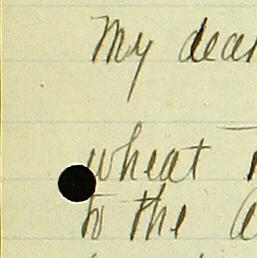 My dear
wheat
to the